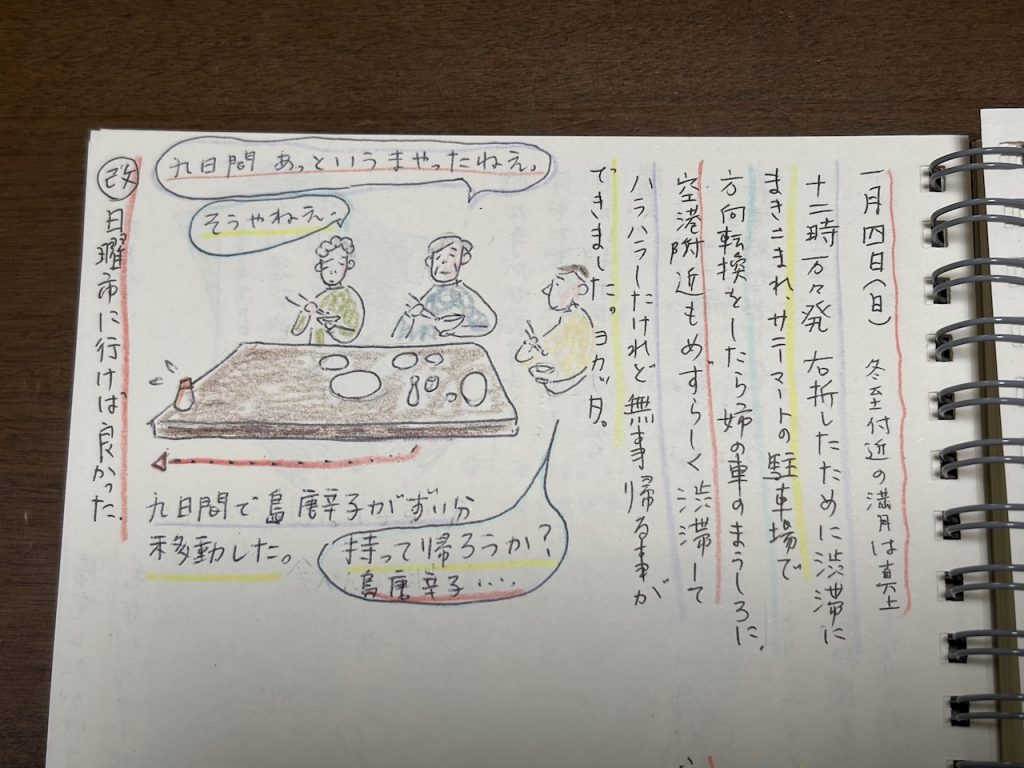 一月四日(日) 冬至付近の満月は真上
十二時万々発 右折したために渋滞に
まきこまれ、サニーマートの駐車場で
方向転換をしたら姉の車のまうしろに。
空港附近もめずらしく渋滞して
ハラハラしたけれど無事帰る事が
できました。ヨカッタ。
九日間 あっというまやったねえ。
そうやねえ。
持って帰ろうか?
島唐辛子・・・・
九日間で島唐辛子がずい分
移動した。
改 日曜市に行けば良かった。